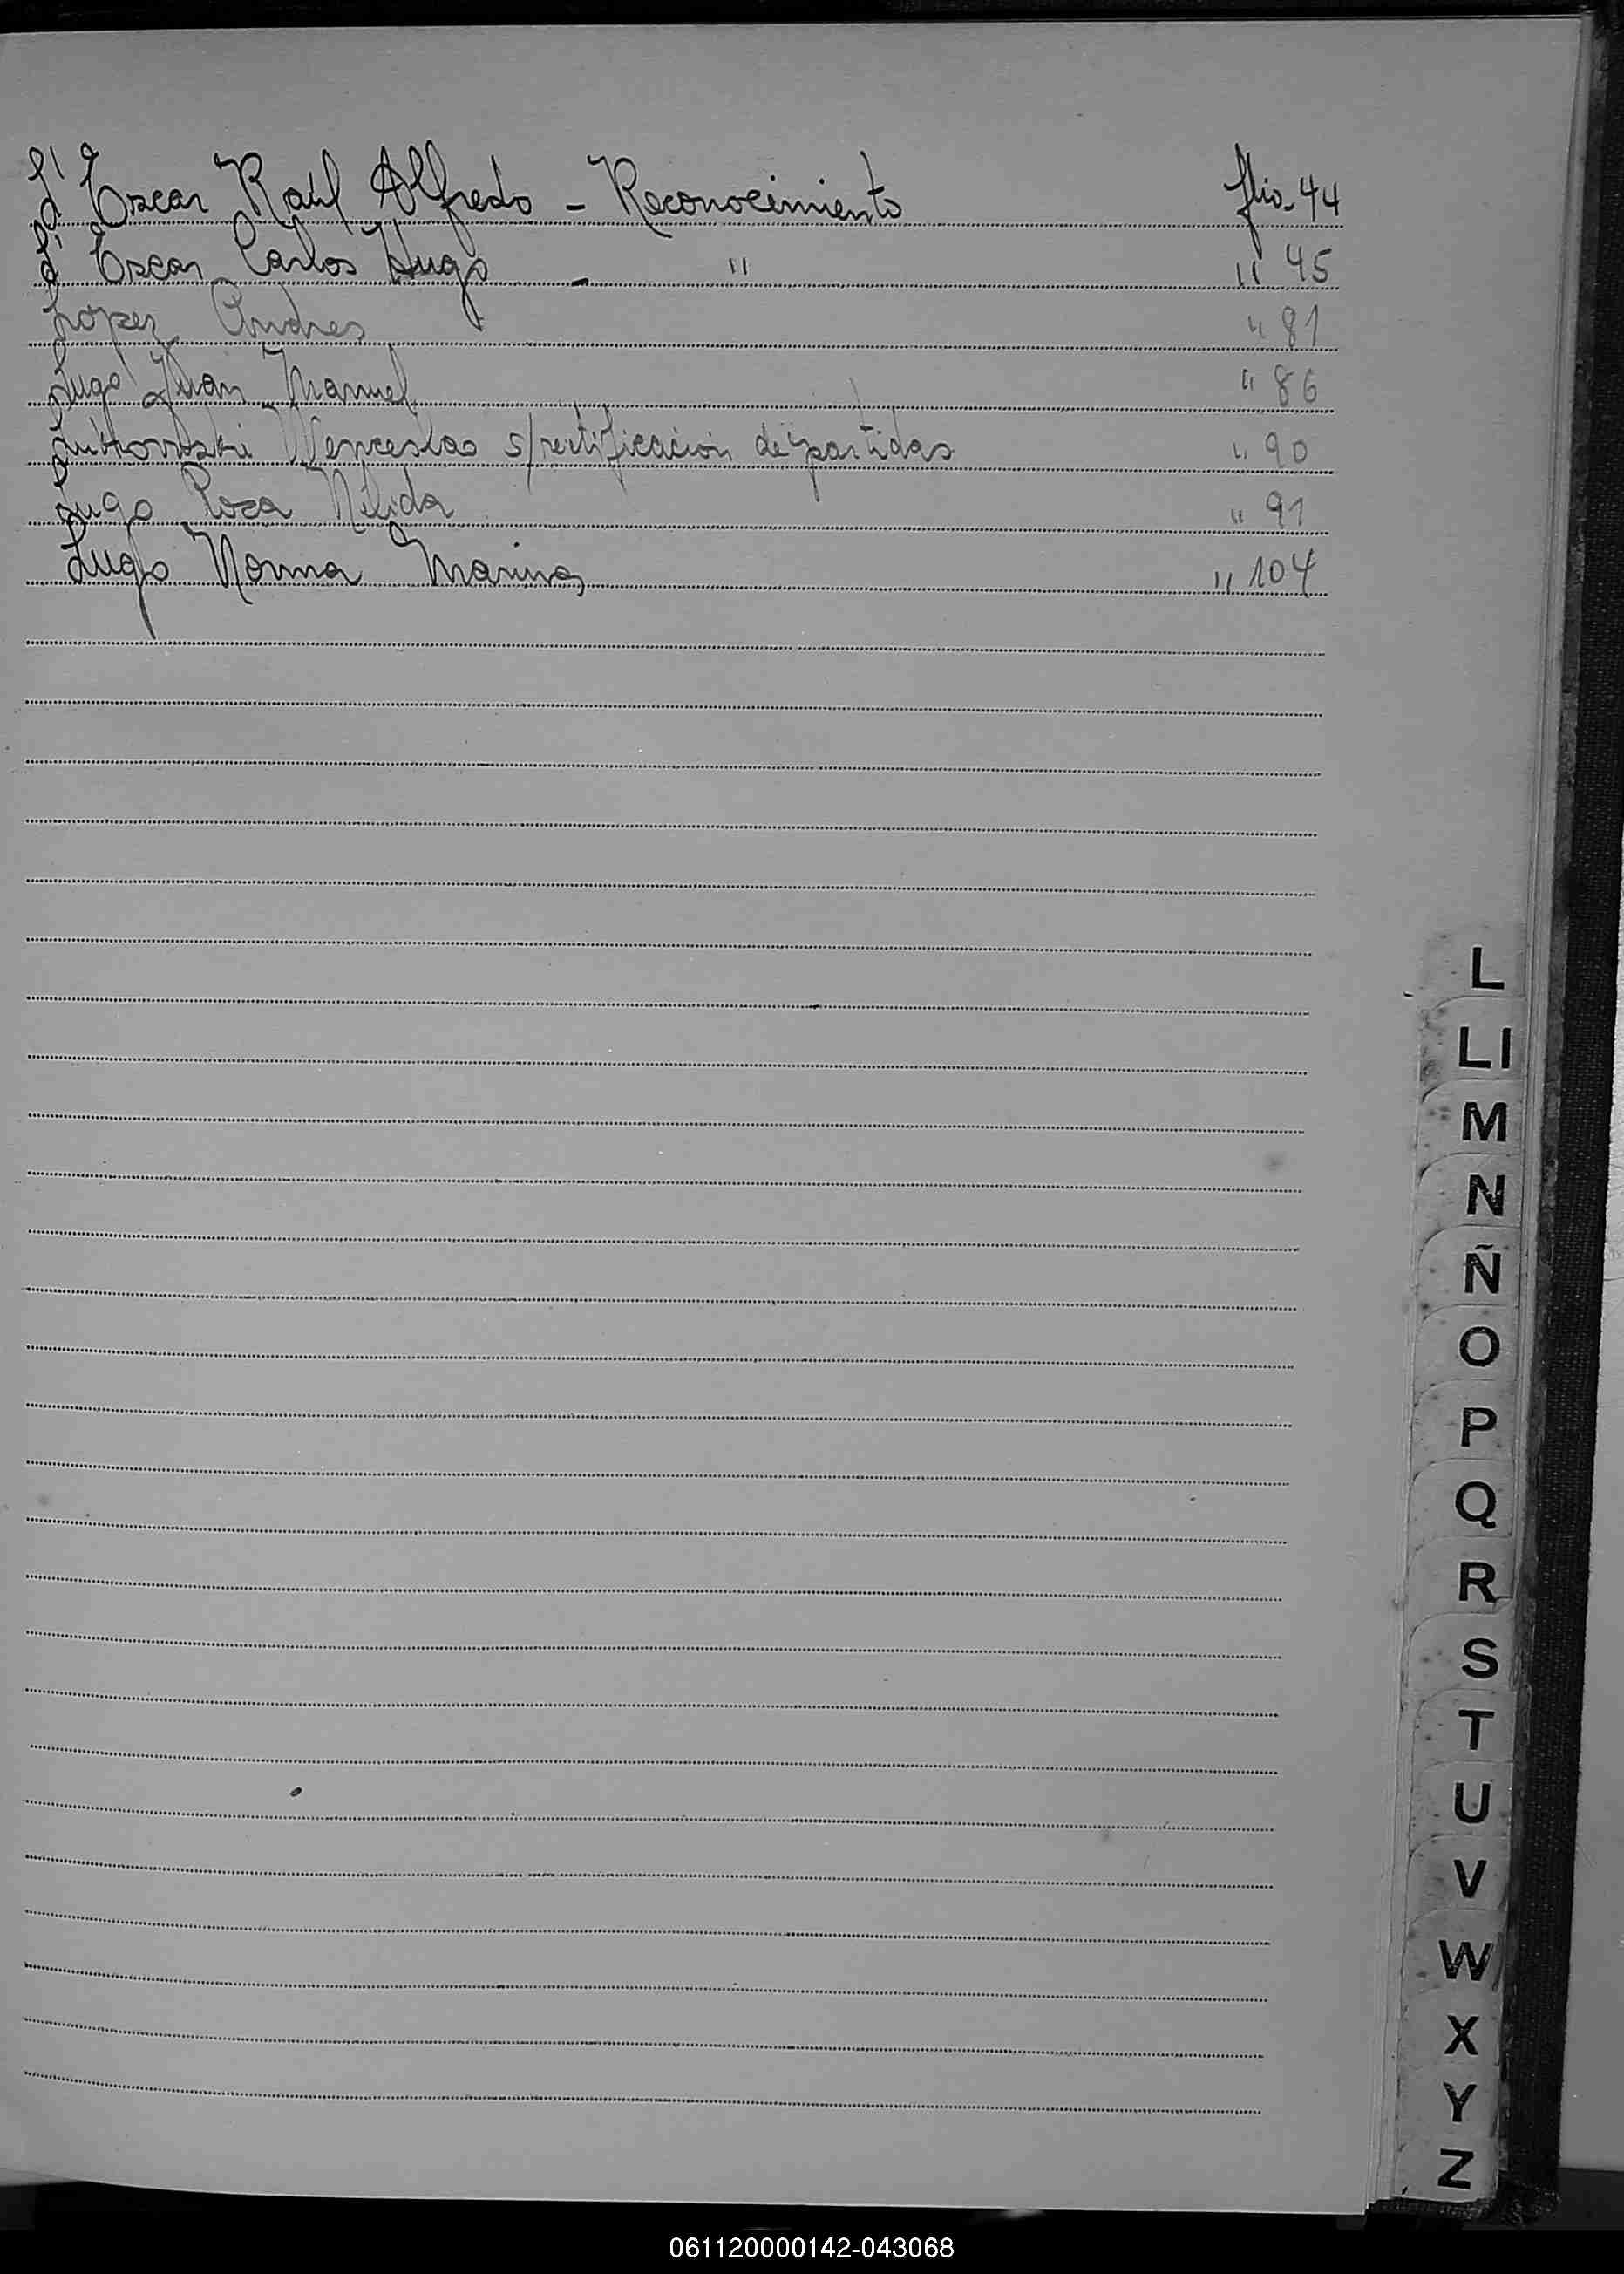 L'Escar Raúl Alfredo - Reconocimiento flio. 44
L'Escar Carlos Hugo - " " 45
Lopez Andres " 81
Lugo Juan Manuel " 86
Wenceslao s/rectificación de partidas " 90
Lugo Rosa Nélida " 91
Lugo Norma Marina " 104
L
LI
M
N
Ñ
O
P
Q
R
S
T
U
V
W
X
Y
Z
061120000142-043068